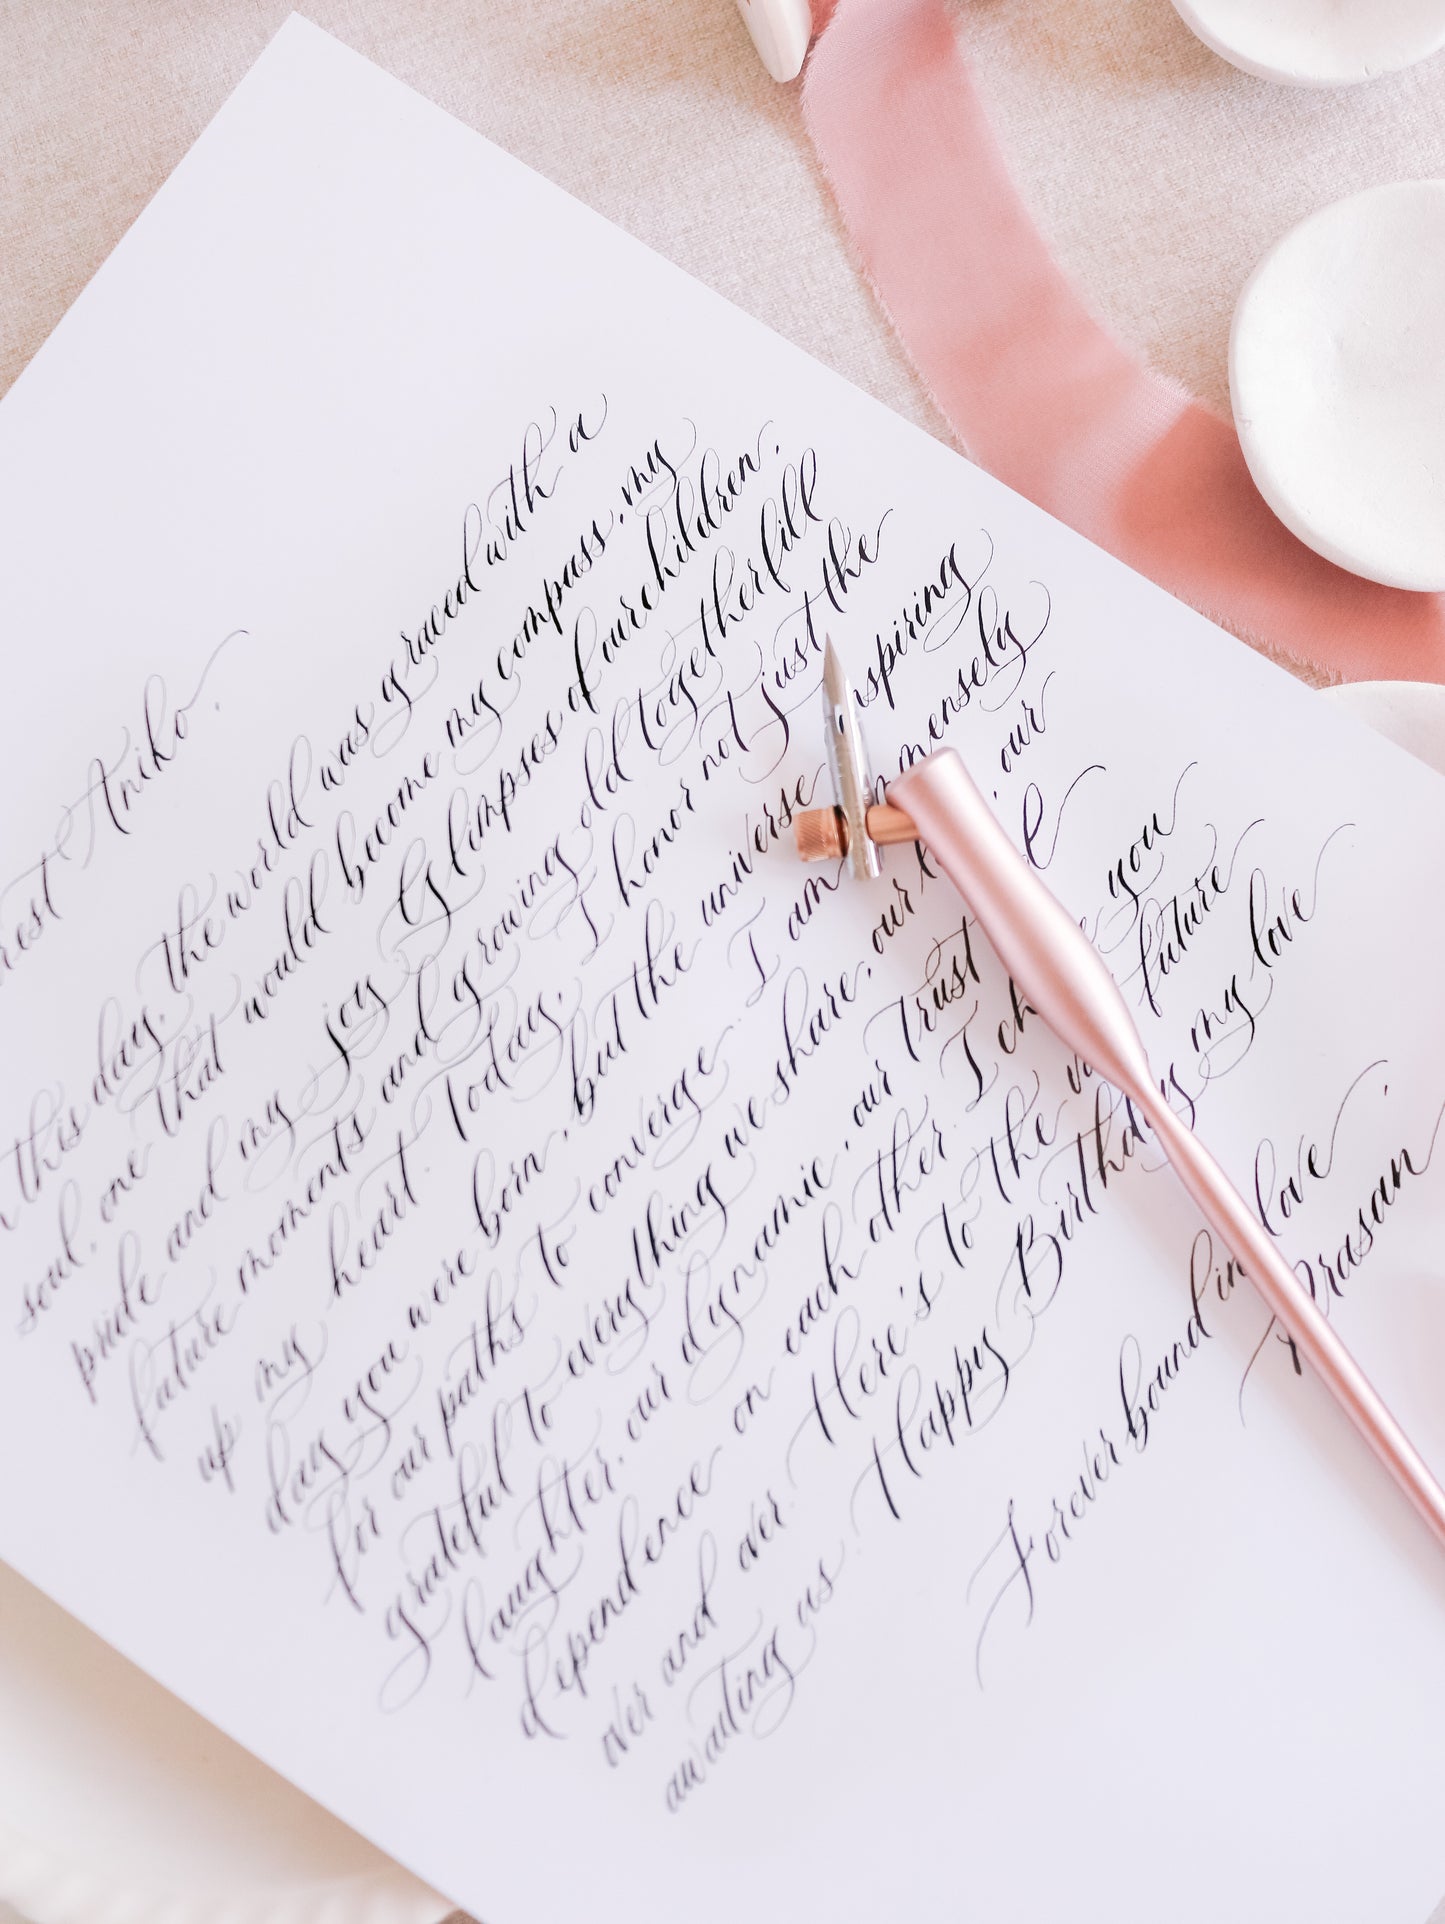 rest Aniko,
this day, the world was graced with a
soul, one that would become my compass, my
pride and my joy. Glimpses of our children,
future moments and growing old together fill
up my heart. Today, I honor not just the
day you were born, but the universe inspiring
for our paths to converge. I am immensely
grateful to everything we share, our our
laughter, our dynamic, our trust
dependence on each other. I you
over and over. Here's to the future
awaiting us. Happy Birthday my love
Forever bound in love
Prasan